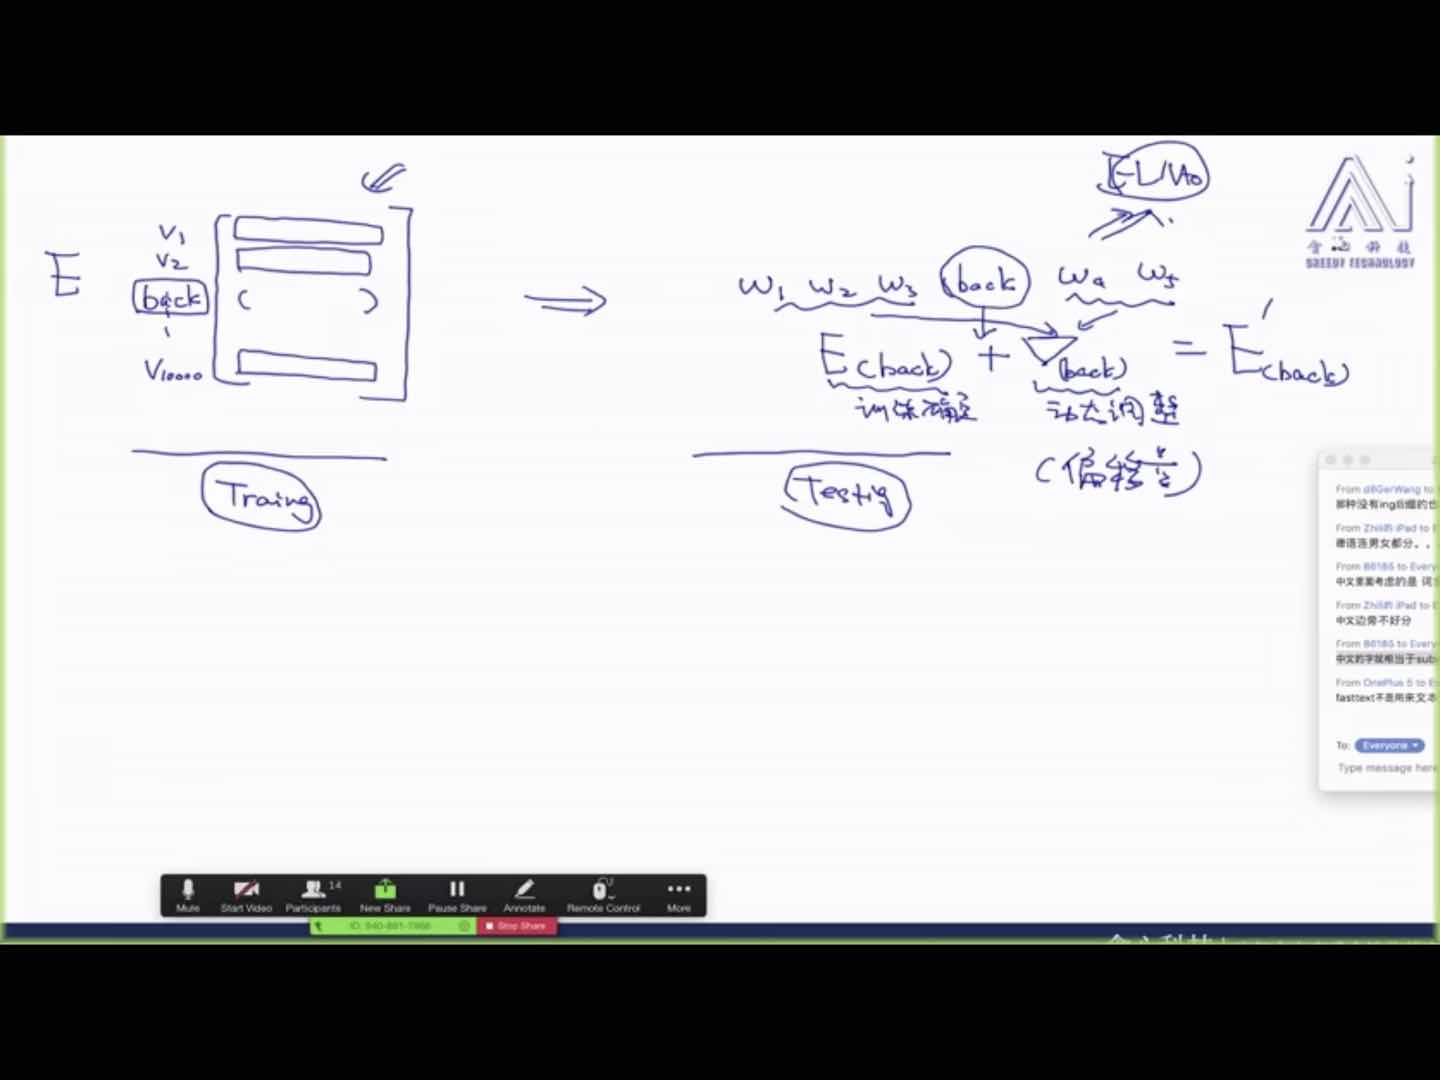 ELMo
V1
V2
E
back
V10000
W1 W2 W3 back W4 W5
E(back) + ▽(back) = E'(back)
训练确定
动态调整
(偏移量)
Traing
Testig
SREEDY TECHNOLOGY
From d8GerWang to
那种没有ing后缀的也
From Zhili的 iPad to E
德语连男女都分。。
From B6185 to Every
中文里面考虑的是 词
From Zhili的 iPad to E
中文边旁不好分
From B6185 to Every
中文的字就相当于sub
From OnePlus 5 to E
fasttext不是用来文本
To: Everyone
Type message here
Mute
Start Video
14
Participants
New Share
Pause Share
Annotate
Remote Control
More
Stop Share